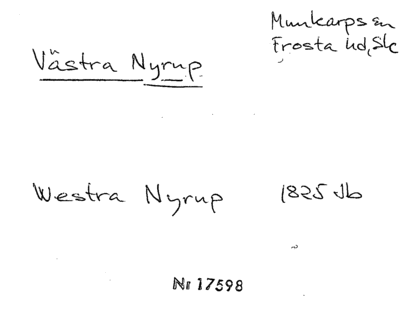 Munkarps sn
Västra Nyrup
Frosta hd, Sk
Westra Nyrup 1825 Jb
Nr 17598